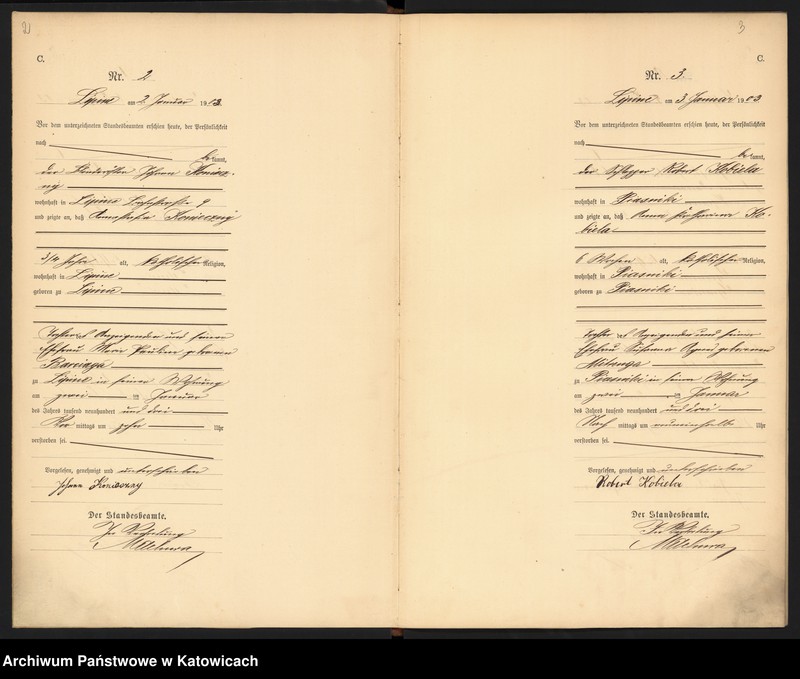 2
C.
Nr. 2
Lipine am 2. Januar 1903.
Vor dem unterzeichneten Standesbeamten erschien heute, der Persönlichkeit
nach
be kannt,
der Johann Koniecz-
ny
wohnhaft in Lipine 9
und zeigte an, daß Konieczny
3/4 Jahr alt, katholischer Religion,
wohnhaft in Lipine
geboren zu Lipine
Tochter des Anzeigenden und seiner
Ehefrau Marie Pauline geborenen
zu Lipine in seiner Wohnung
am zwei ten Januar
des Jahres tausend neunhundert und drei
Vor mittags um zehn Uhr
verstorben sei.
Vorgelesen, genehmigt und unterschrieben
Johann Konieczny
Der Standesbeamte.
In Vertretung
3
C.
Nr. 3.
Lipine am 3. Januar 1903
Vor dem unterzeichneten Standesbeamten erschien heute, der Persönlichkeit
nach
be kannt,
der Robert Kobiela
wohnhaft in Piasniki
und zeigte an, daß Anna Ko-
biela
6 Wochen alt, katholischer Religion,
wohnhaft in Piasniki
geboren zu Piasniki
Tochter des Anzeigenden und seiner
Ehefrau Agnes geborenen
zu Piasniki in seiner Wohnung
am zwei ten Januar
des Jahres tausend neunhundert und drei
Nach mittags um neuneinhalb Uhr
verstorben sei.
Vorgelesen, genehmigt und unterschrieben
Robert Kobiela
Der Standesbeamte.
In Vertretung
Archiwum Państwowe w Katowicach